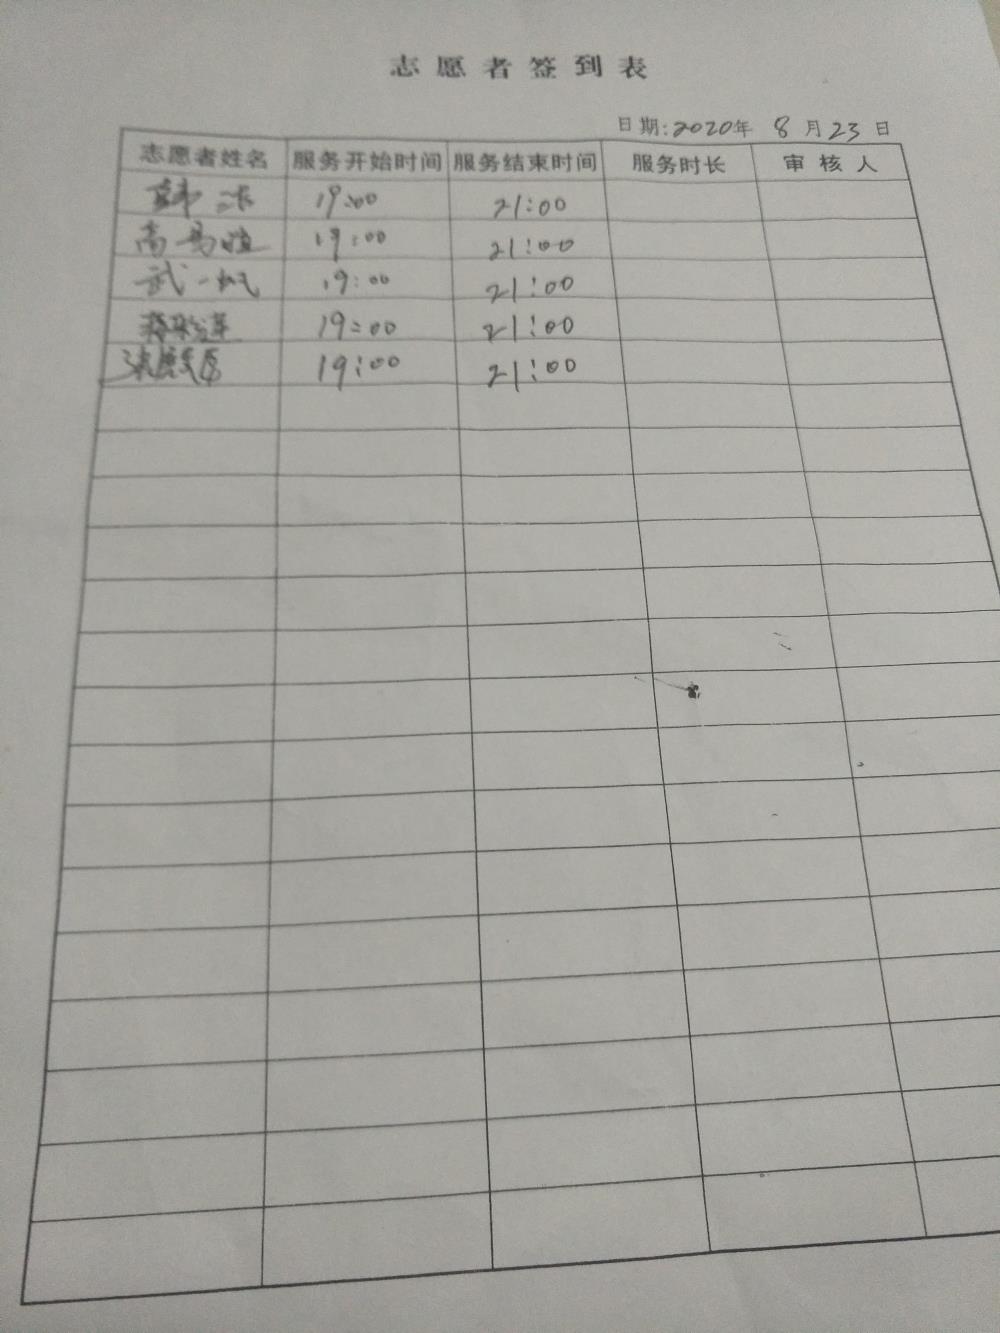 志愿者签到表
日期:2020年 8月23日
志愿者姓名 服务开始时间 服务结束时间 服务时长 审核人
19:00 21:00
19:00 21:00
武一帆 19:00 21:00
19:00 21:00
19:00 21:00